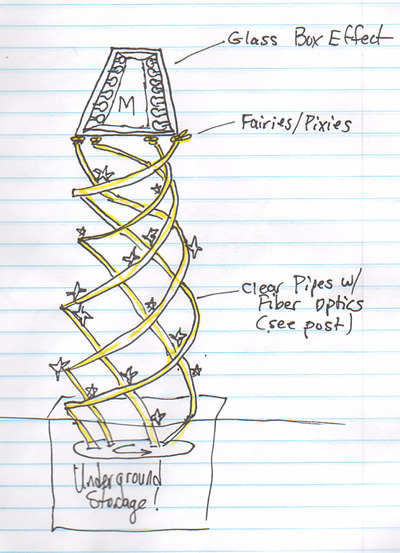 Glass Box Effect
M
Fairies/Pixies
Clear Pipes w/
Fiber Optics
(see post)
Underground
Storage!